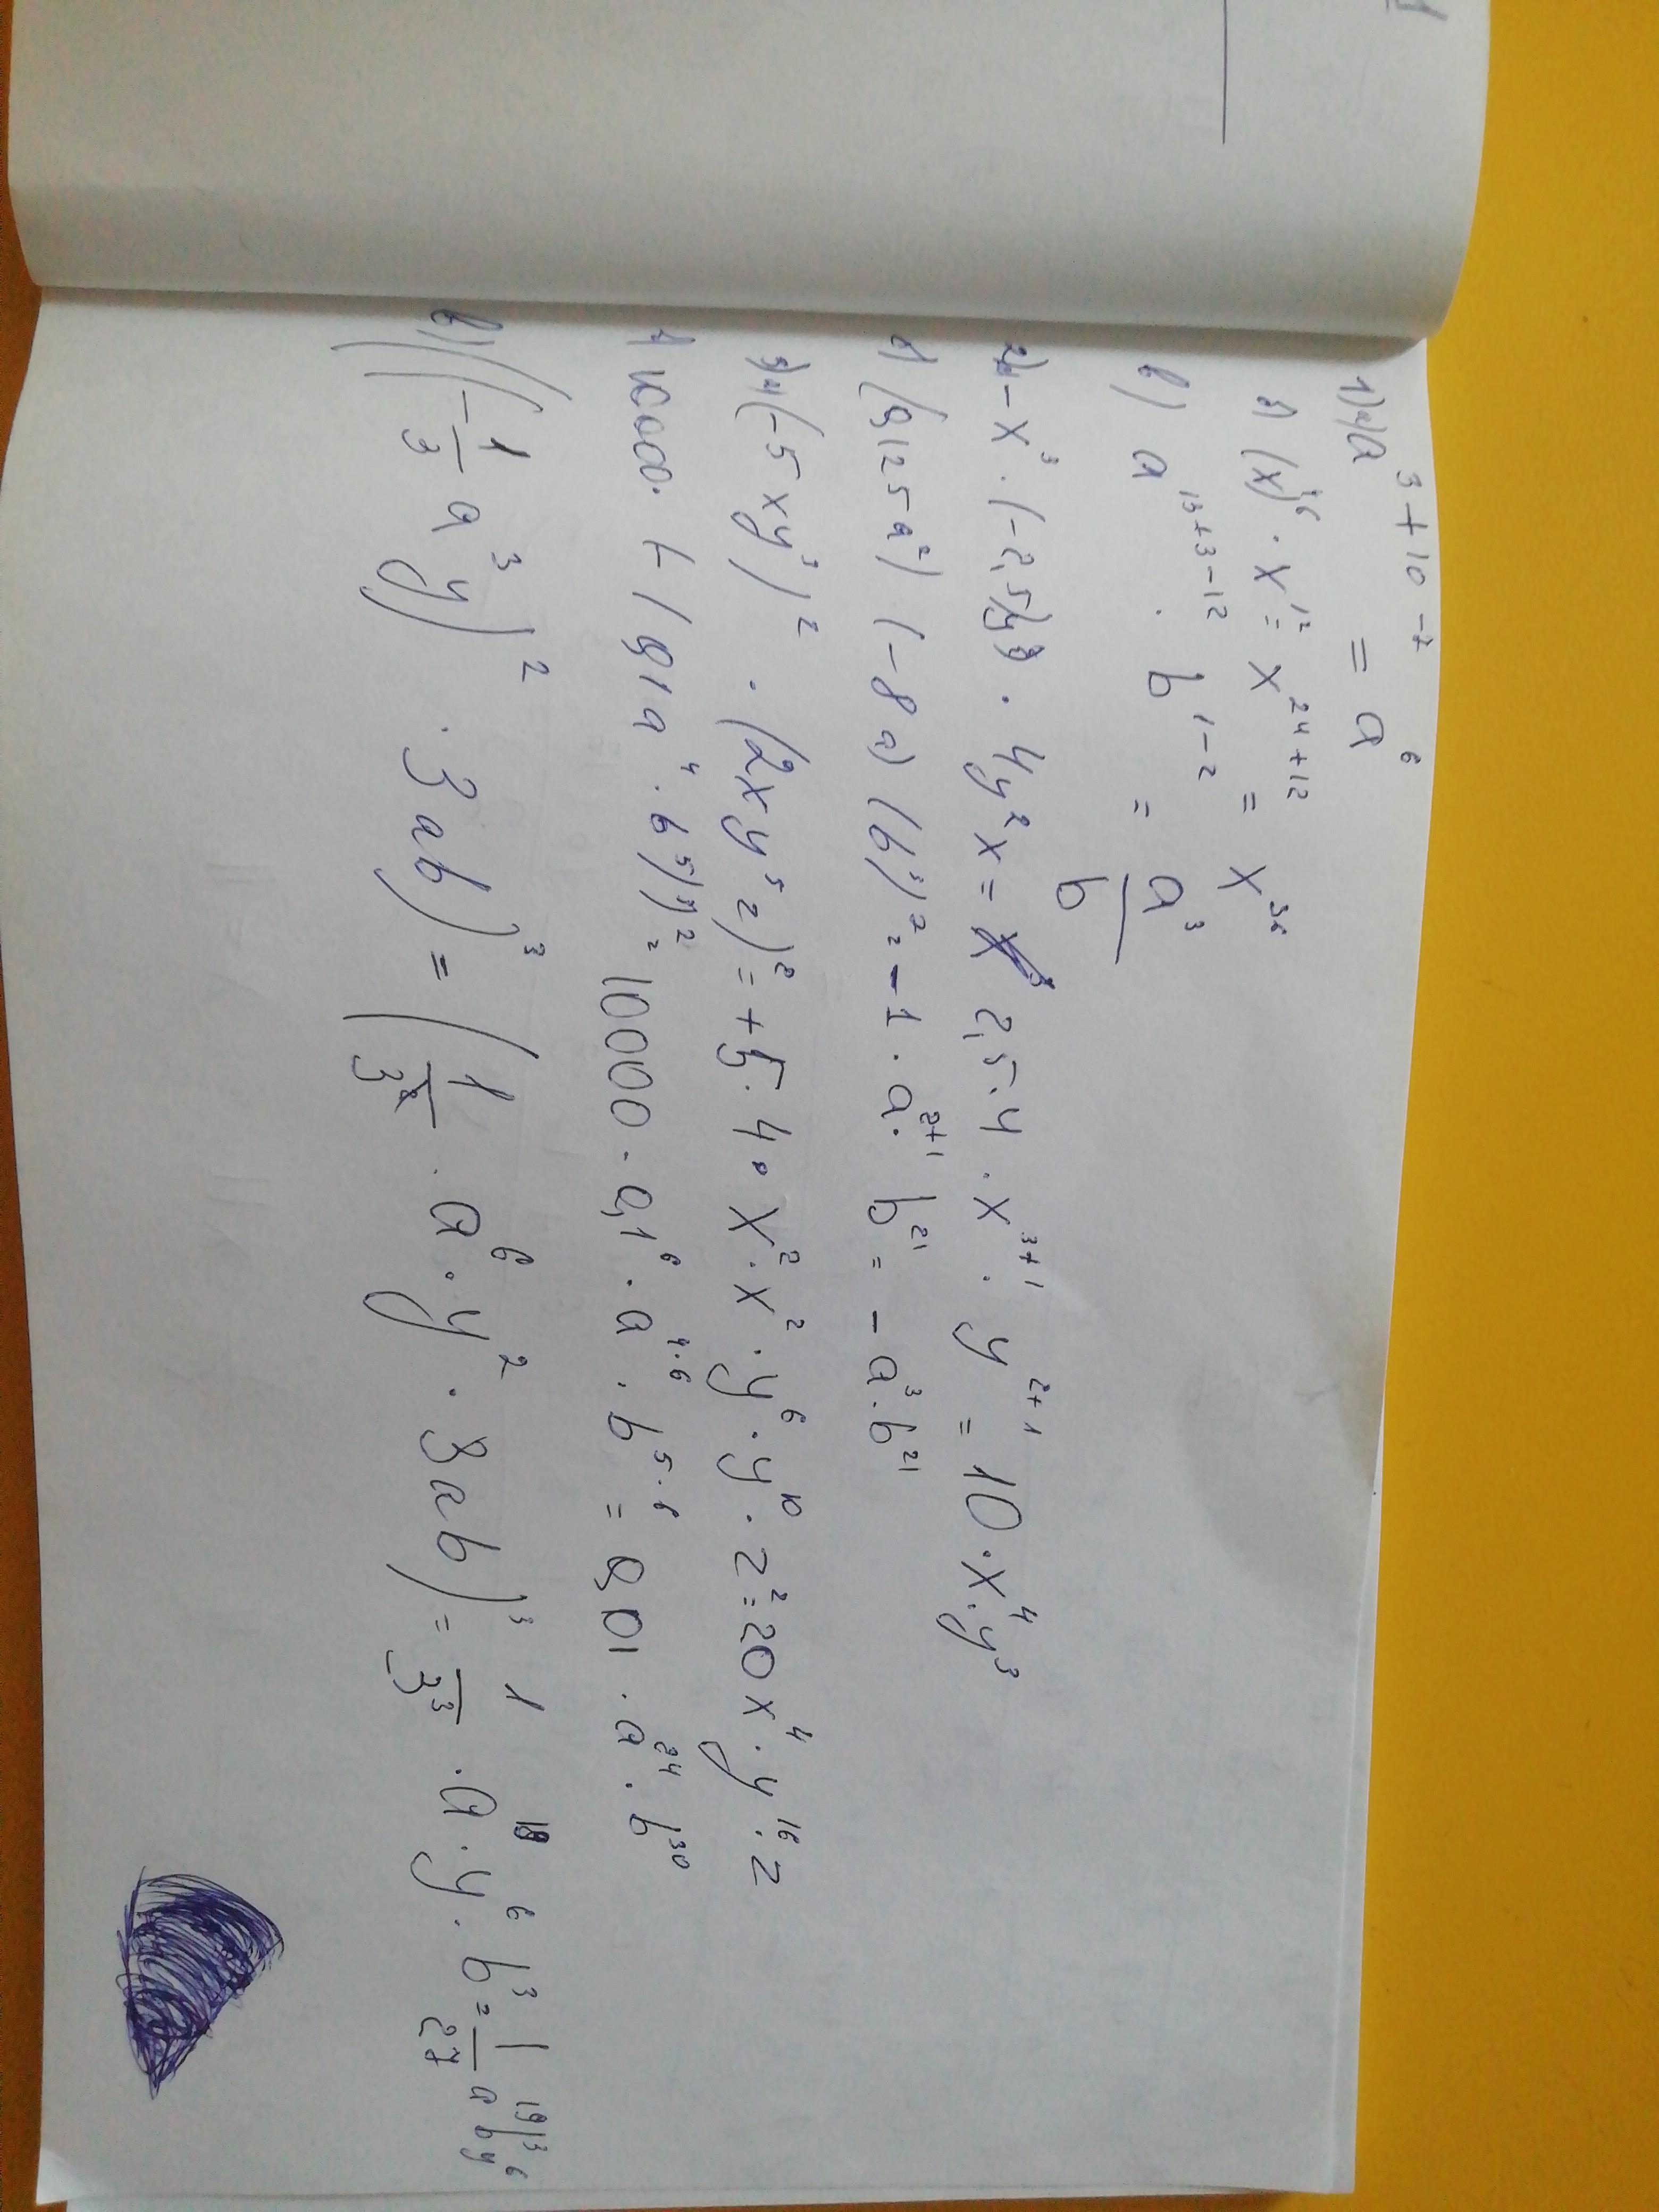 1) а) a^{3+10-7} = a^6
б) (x)^{} · x^{12} = x^{24+12} = x^{36}
в) a^{13+3-12} · b^{1-2} = \frac{a^3}{b}
2) а) -x^3 · (-2,5y) · 4y^2x = 2,5·4 · x^{3+1} · y^{2+1} = 10·x^4·y^3
б) (0,125a^2) (-8a) (b^3)^7 = -1 · a^{2+1} · b^{21} = -a^3·b^{21}
3) а) (-5xy^3)^2 · (2xy^5z)^2 = +5·4·x^2·x^2·y^6·y^{10}·z^2 = 20x^4·y^{16}·z
10000 · (-(0,1a^4·b^5)^3)^2 = 10000 · 0,1^6 · a^{4·6} · b^{5·6} = 0,01 · a^{24} · b^{30}
в) ((-\frac{1}{3}a^3y)^2 · 3ab)^3 = (\frac{1}{3^2} · a^6 · y^2 · 3ab)^3 = \frac{1}{3^3} · a^{19} · y^6 · b^3 = \frac{1}{27}a^{19}b^3y^6